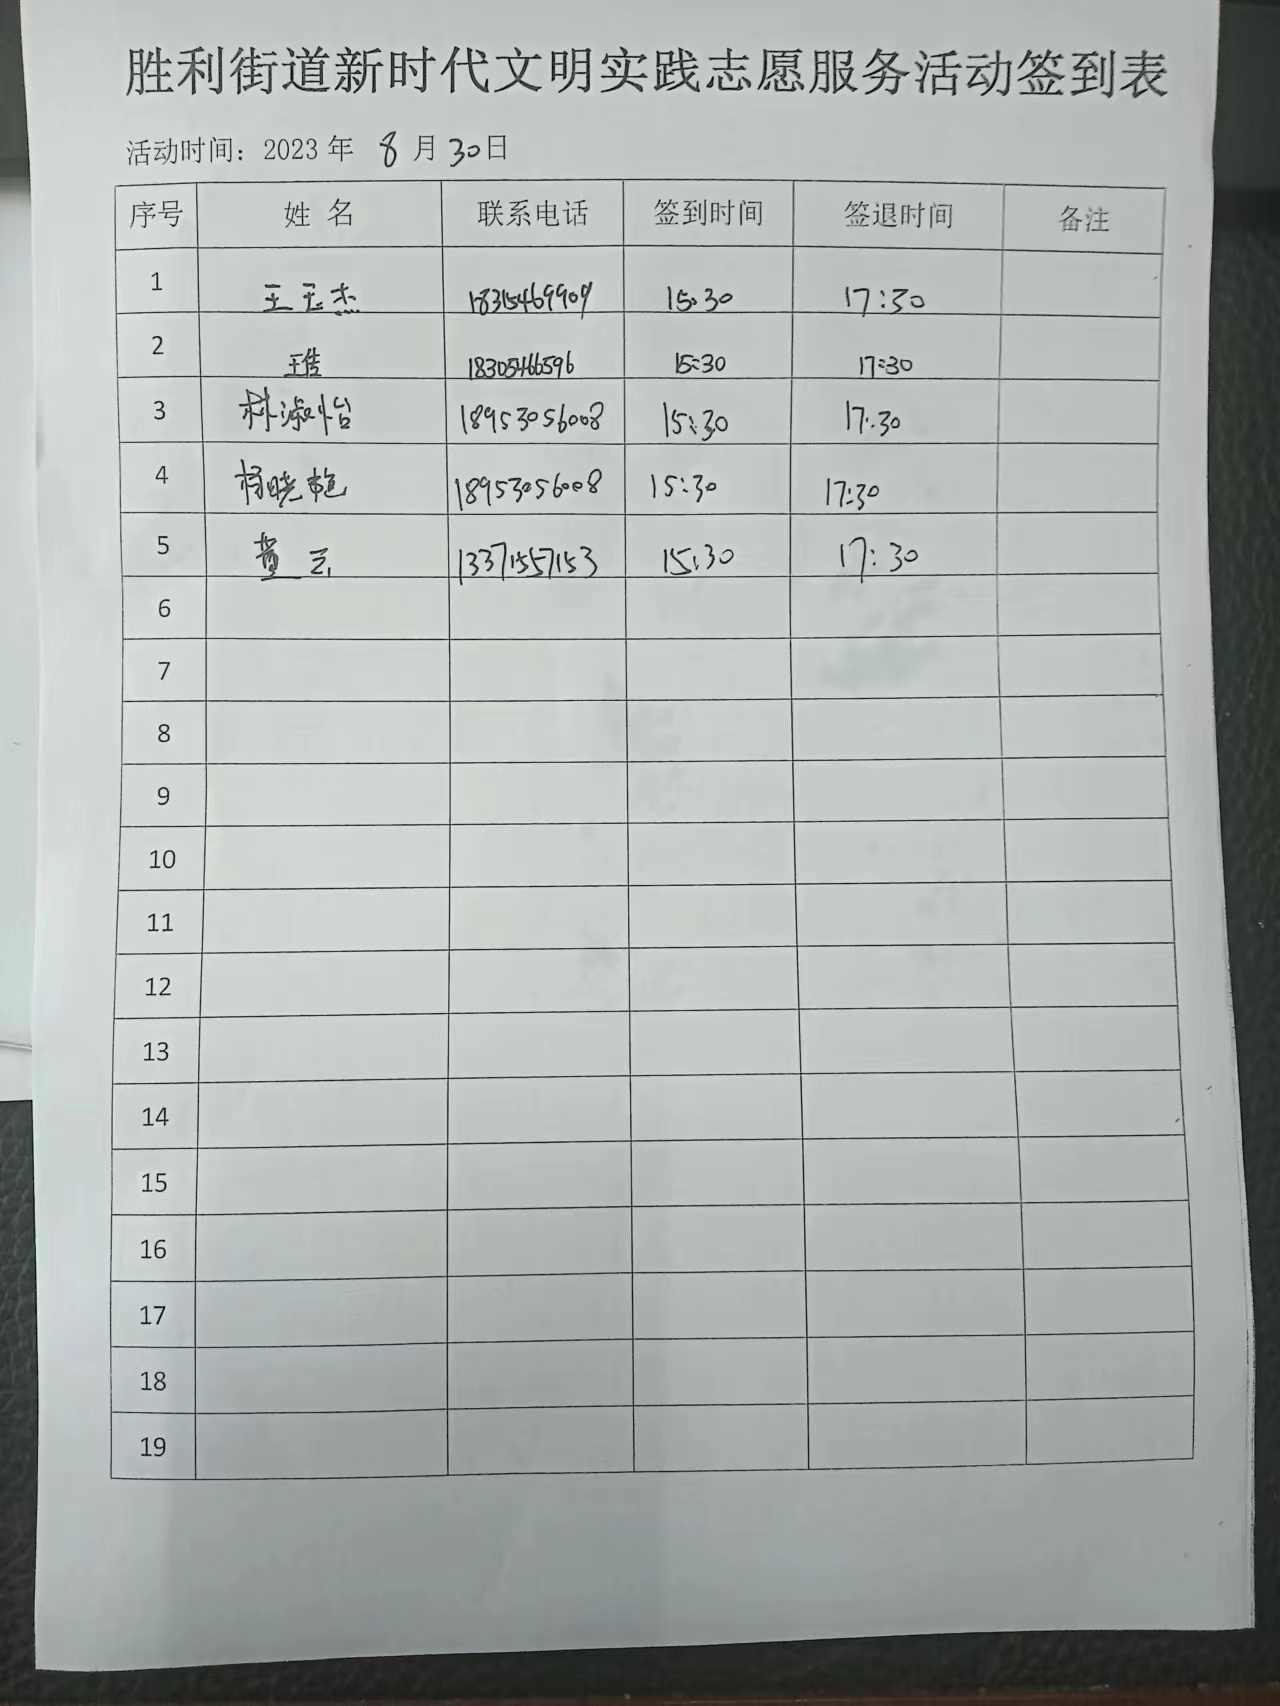 胜利街道新时代文明实践志愿服务活动签到表
活动时间：2023 年 8 月 30日
序号 姓 名 联系电话 签到时间 签退时间 备注
1 王玉杰 18315469909 15:30 17:30
2 王 18305466596 15:30 17:30
3 林淑怡 18953056008 15:30 17:30
4 杨晓艳 18953056008 15:30 17:30
5 黄云 13371557153 15:30 17:30
6
7
8
9
10
11
12
13
14
15
16
17
18
19